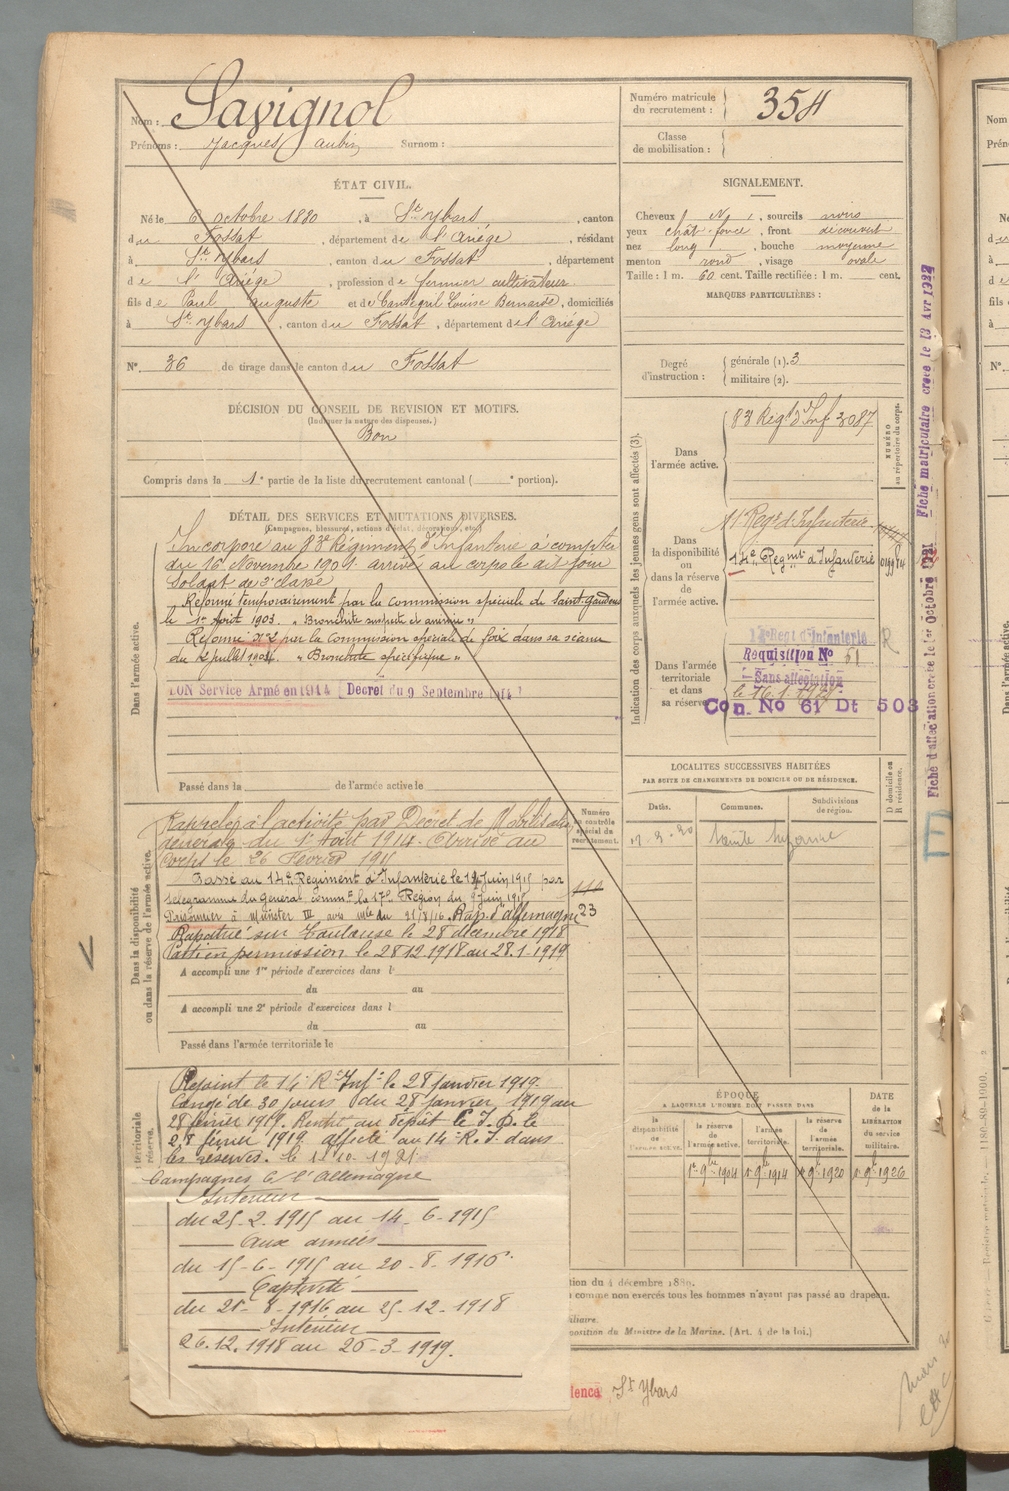 Nom : Savignol
Prénoms : Jacques Aubin Surnom :
Numéro matricule du recrutement : 354
Classe de mobilisation :
ÉTAT CIVIL.
Né le 6 octobre 1880, à St Ybars, canton
du Fossat, département de l'Ariége, résidant
à St Ybars, canton du Fossat, département
de l'Ariége, profession de fermier cultivateur
fils de Paul Auguste et de Louise Bernarde, domiciliés
à St Ybars, canton du Fossat, département de l'Ariége
N° 36 de tirage dans le canton du Fossat
SIGNALEMENT.
Cheveux N, sourcils noirs
yeux chât. foncé, front découvert
nez long, bouche moyenne
menton rond, visage ovale
Taille : 1 m. 60 cent. Taille rectifiée : 1 m. cent.
MARQUES PARTICULIÈRES :
Degré d'instruction : générale (1). 3
militaire (2).
DÉCISION DU CONSEIL DE REVISION ET MOTIFS.
(Indiquer la nature des dispenses.)
Bon
Compris dans la 1e partie de la liste du recrutement cantonal ( e portion).
DÉTAIL DES SERVICES ET MUTATIONS DIVERSES.
(Campagnes, blessures, actions d'éclat, décorations, etc.)
Dans l'armée active.
Incorporé au 83e Régiment d'Infanterie à compter
du 16 Novembre 1901. arrivé au corps le dit jour
Soldat de 2e classe
Réformé temporairement par la commission spéciale de Saint-Gaudens
le 1er Août 1903. "Bronchite suspecte et anémie"
Réformé N°2 par la Commission spéciale de foix dans sa séance
du 2 juillet 1904. "Bronchite spécifique"
BON Service Armé en 1914 (Décret du 9 Septembre 1914)
Passé dans la de l'armée active le
Indication des corps auxquels les jeunes gens sont affectés (3).
NUMÉRO au répertoire du corps.
Dans l'armée active.
83 Régt d'Inf 3087
Dans la disponibilité ou dans la réserve de l'armée active.
Régt d'Infanterie
14e Régmt d'Infanterie 019984
Dans l'armée territoriale et dans sa réserve
14e Regt d'Infanterie
Requisition No 61
Sans affectation
le 16.1.
Con. No 61 Dt 503
R
Fiche d'affectation créée le 1er Octobre 1921
Fiche matriculaire créée le 13 Avr 1922
LOCALITES SUCCESSIVES HABITÉES
PAR SUITE DE CHANGEMENTS DE DOMICILE OU DE RÉSIDENCE.
D domicile ou R résidence.
Dates. Communes. Subdivisions de région.
17-3-20 Sainte Suzanne
Dans la disponibilité ou dans la réserve de l'armée active.
Numéro au contrôle spécial du recrutement.
Rappelé à l'activité par Décret de Mobilisation
générale du 1er Août 1914. Arrivé au
Corps le 26 Février 1915
Passé au 14e Régiment d'Infanterie le 14 Juin 1915 par
telegramme du Général commt la 17e Région du 9 Juin 1915
Prisonnier à Münster III avis mle du 21/8/16. Rap. d'allemagne
23
Rapatrié sur Toulouse le 28 décembre 1918
Parti en permission le 28 12 1918 au 28.1.1919
A accompli une 1re période d'exercices dans l
du au
A accompli une 2e période d'exercices dans l
du au
Passé dans l'armée territoriale le
territoriale réserve.
Rejoint le 14e R. Infie le 28 janvier 1919.
Congé de 30 jours du 28 janvier 1919 au
28 février 1919. Rentré au dépôt le
28 février 1919 affecté au 14e R.I. dans
les réserves. le 1-10-1921
Campagnes C. l'Allemagne
Intérieur
du 25-2-1915 au 14-6-1915
Aux armées
du 15-6-1915 au 20-8-1916
Captivité
du 21-8-1916 au 25-12-1918
Intérieur
26.12.1918 au 26-3-1919.
ÉPOQUE
A LAQUELLE L'HOMME DOIT PASSER DANS
la disponibilité de l'armée active.
la réserve de l'armée active.
l'armée territoriale.
la réserve de l'armée territoriale.
DATE de la LIBÉRATION du service militaire.
1er 9bre 1904
1er 9bre 1914
1er 9bre 1920
1er 9bre 1926
tion du 4 décembre 1889.
comme non exercés tous les hommes n'ayant pas passé au drapeau.
iliaire.
position du Ministre de la Marine. (Art. 4 de la loi.)
dence St Ybars
Nom